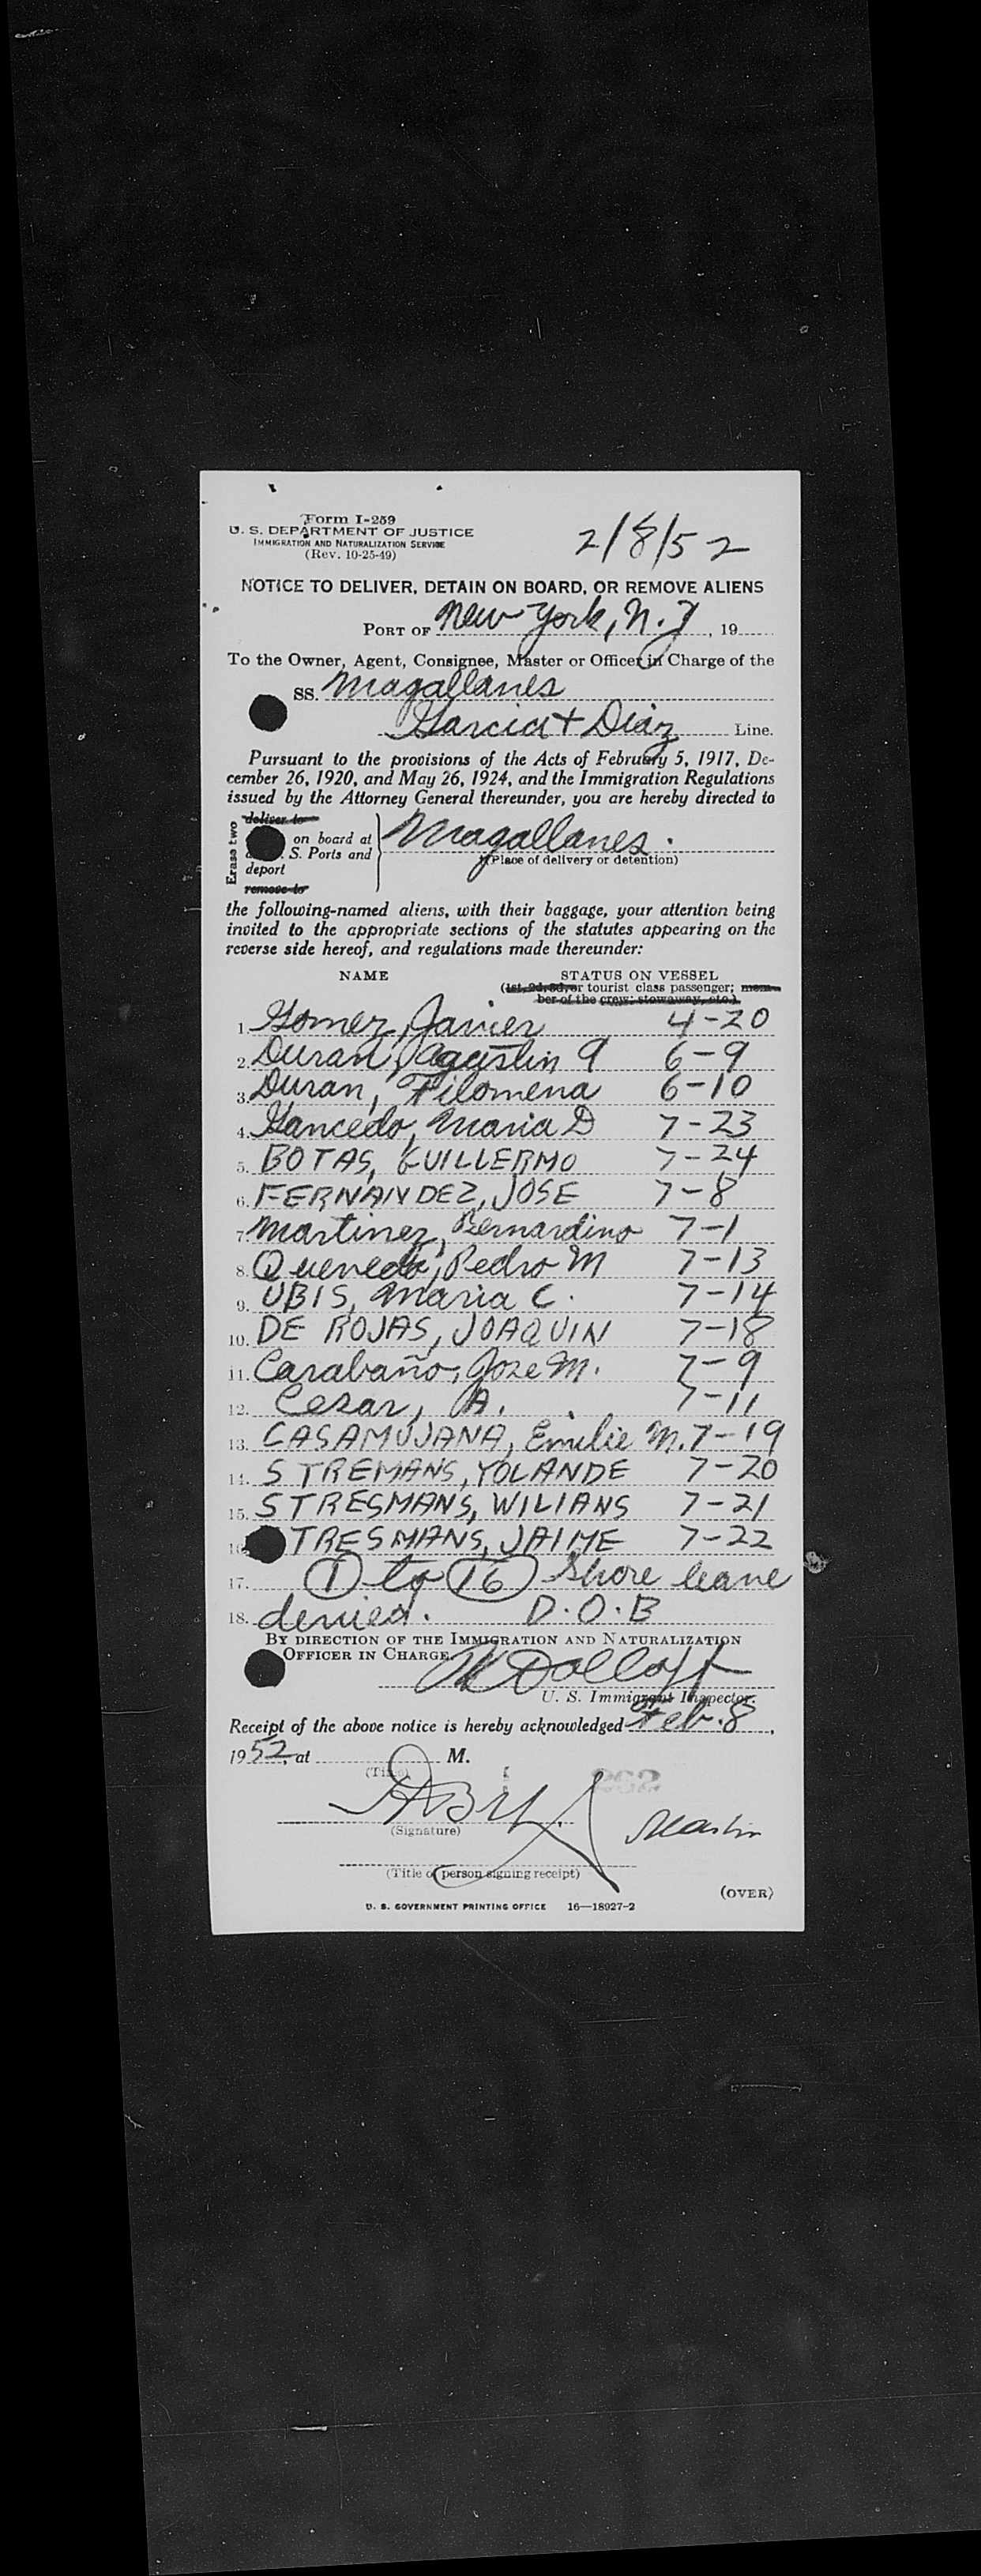 Form I-259
U. S. DEPARTMENT OF JUSTICE
IMMIGRATION AND NATURALIZATION SERVICE
(Rev. 10-25-49)
2/8/52
NOTICE TO DELIVER, DETAIN ON BOARD, OR REMOVE ALIENS
PORT OF New York, N.Y, 19
To the Owner, Agent, Consignee, Master or Officer in Charge of the
SS. Magallanes
Garcia + Diaz Line.
Pursuant to the provisions of the Acts of February 5, 1917, De-
cember 26, 1920, and May 26, 1924, and the Immigration Regulations
issued by the Attorney General thereunder, you are hereby directed to
Erase two
deliver to
on board at
S. Ports and
deport
remove to
Magallanes.
(Place of delivery or detention)
the following-named aliens, with their baggage, your attention being
invited to the appropriate sections of the statutes appearing on the
reverse side hereof, and regulations made thereunder:
NAME STATUS ON VESSEL
(1st, 2d, 3d, or tourist class passenger; mem-
ber of the crew; stowaway, etc.)
1. Gomez, Javier 4-20
2. Duran, Agustin 6-9
3. Duran, Filomena 6-10
4. Gancedo, Maria D 7-23
5. BOTAS, GUILLERMO 7-24
6. FERNANDEZ, JOSE 7-8
7. Martinez, Bernardino 7-1
8. Quevedo, Pedro M 7-13
9. UBIS, Maria C. 7-14
10. DE ROJAS, JOAQUIN 7-18
11. Carabaño, Jose M. 7-9
12. Cesar, A. 7-11
13. CASAMUJANA, Emilie M. 7-19
14. STREMANS, YOLANDE 7-20
15. STRESMANS, WILIANS 7-21
16 TRESMANS, JAIME 7-22
17. 1 to 16 Shore leave
18. denied. D.O.B
BY DIRECTION OF THE IMMIGRATION AND NATURALIZATION
OFFICER IN CHARGE.
U. S. Immigrant Inspector.
Receipt of the above notice is hereby acknowledged Feb. 8,
1952, at M.
(Time)
(Signature)
(Title of person signing receipt)
(OVER)
U. S. GOVERNMENT PRINTING OFFICE 16—18927-2